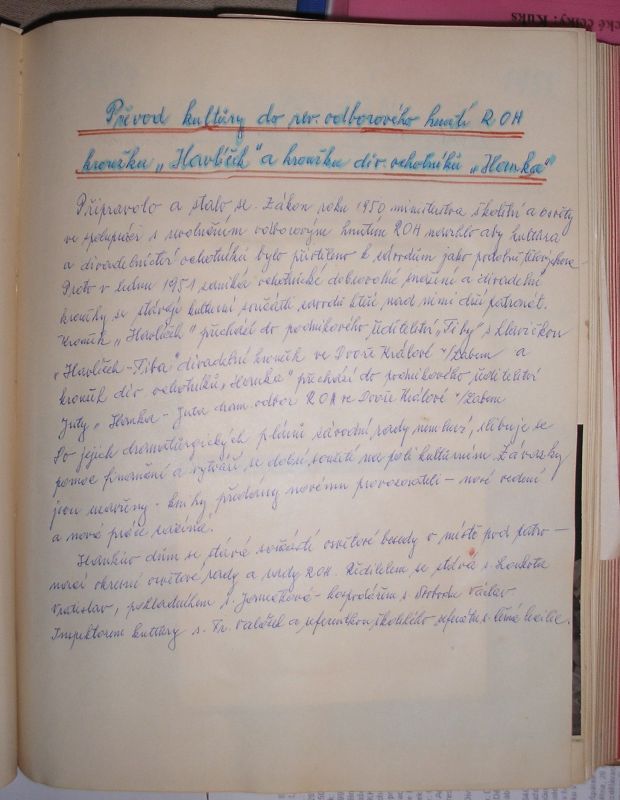 cké čtky: Kuks
Převod kultůry do rev. odborového hnutí ROH
kroužku „Havlíček" a kroužku div. ochotníků „Hanka"
Připravolo a stalo se. Zákon roku 1950 ministerstva školství a osvěty
ve spolupráci s revolučním odborovým hnutím ROH navrhlo aby kultůra
a divadelnictví ochotníků bylo přivtěleno k závodům jako podniková
Proto v lednu 1951 ochotnické dobrovolné snažení a divadelní
kroužky se stávají kulturní součástí závodů kteří nad nimi drží patronát.
Kroužek „Havlíček" přechází do podnikového ředitelství „Tiby" s hlavičkou
„Havlíček - Tiba" divadelní kroužek ve Dvoře Králové n/Labem a
kroužek div. ochotníků „Hanka" přechází do podnikového ředitelství
Juty „Hanka - Juta dram. odbor ROH ve Dvoře Králové n/Labem
Po jejich dramatůrgických plánů závodní rady slibuje se
pomoc finanční a vytváří se dobré soužití na poli kulturním. Závazky
jsou uzavřeny - knihy předány novému provozovateli - nové vedení
a nová práce začíná.
Hankův dům se stává součástí osvětové besedy v místě pod patro-
nací okresní osvětové rady a rady ROH. Ředitelem se stává s. Loukota
Vratislav, pokladníkem s. hospodářem s. Svoboda Václav
Inspektorem kultury s. Fr. Valášek a referentkou školského referátu s. Černá Cecilie.